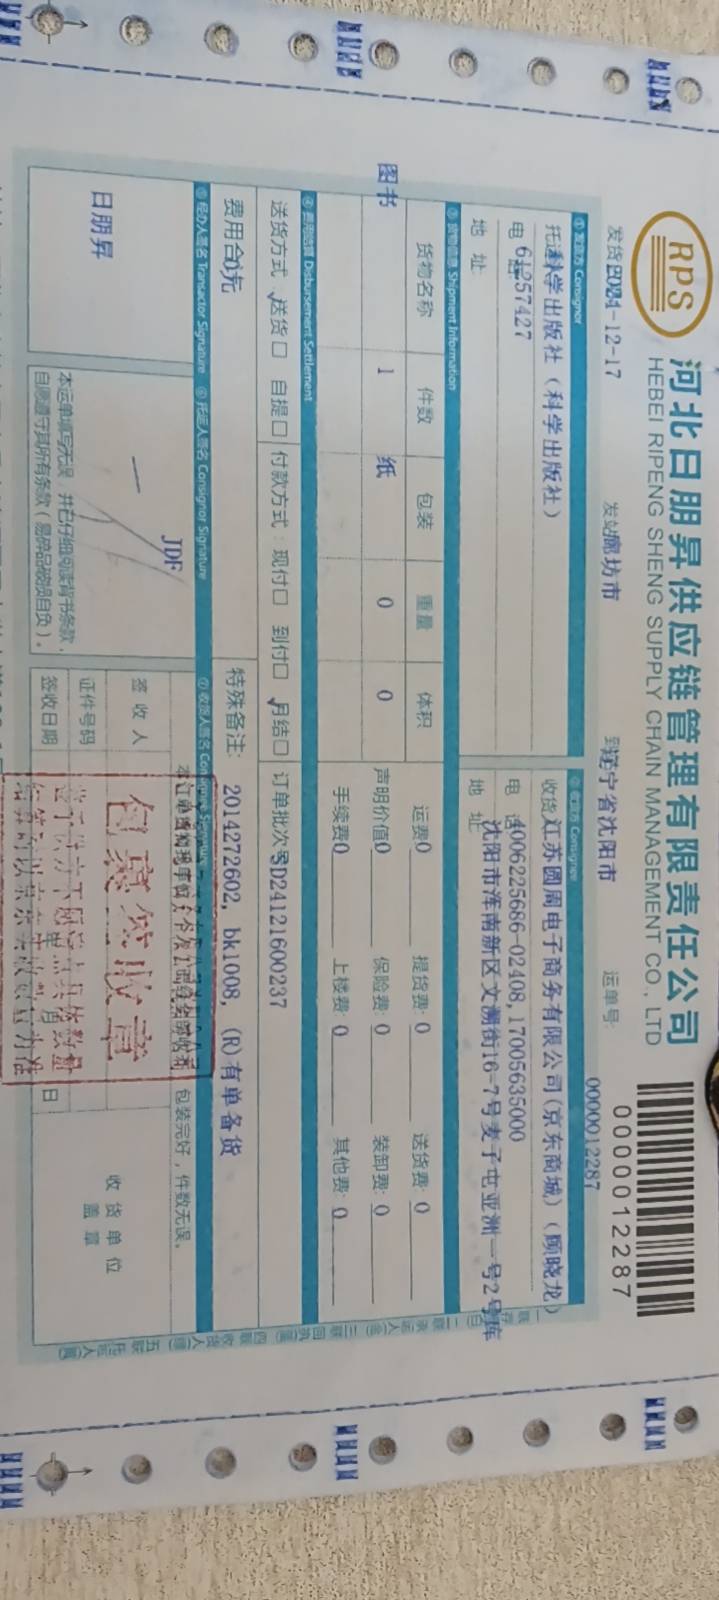 RPS
河北日朋昇供应链管理有限责任公司
HEBEI RIPENG SHENG SUPPLY CHAIN MANAGEMENT CO., LTD
0000012287
发货 2024-12-17
发站 廊坊市
到 辽宁省沈阳市
运单号: 0000012287
① 发货方 Consignor
② 收货方 Consignee
托运 科学出版社 (科学出版社)
收货 江苏圆周电子商务有限公司(京东商城) (顾晓龙)
电话 61257427
电话 4006225686-02408,17005635000
地 址
地 址 沈阳市浑南新区文溯街16-7号麦子屯亚洲一号2号库
③ 货物信息 Shipment Information
货物名称 件数 包装 重量 体积
运费 0 提货费: 0 送货费: 0
图书 1 纸 0 0
声明价值 0 保险费: 0 装卸费: 0
手续费 0 上楼费: 0 其他费: 0
④ 费用结算 Disbursement Settlement
送货方式: √送货□ 自提□ 付款方式: 现付□ 到付□ √月结□ 订单批次号 SD24121600237
费用合 0元
特殊备注: 2014272602, bk1008, (R)有单备货
⑤ 经办人签名 Transactor Signature ⑥ 托运人签名 Consignor Signature ⑦ 收货人签名 Consignee Signature
日朋昇
JDF
包装完好,件数无误。
签 收 人
证件号码
签收日期
月 日
收 货 单 位
盖 章
本运单填写无误,并已仔细阅读背书条款,
自愿遵守其所有条款(易碎品破损自负)。
签收章